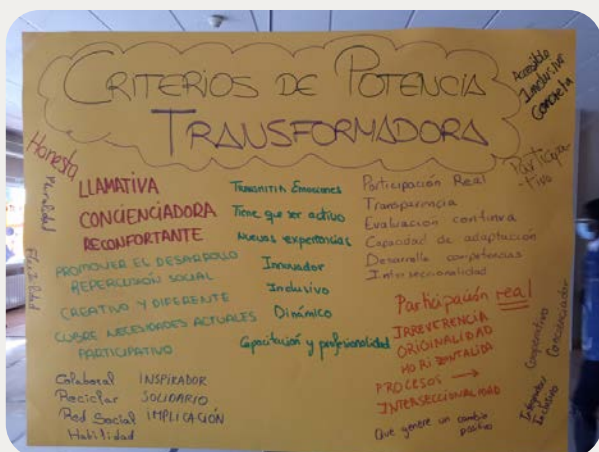 CRITERIOS DE POTENCIA
TRANSFORMADORA
Accesible
Inclusiva
Concreta
Honesta
Pluralidad
Flexibilidad
LLAMATIVA
CONCIENCIADORA
RECONFORTANTE
PROMOVER EL DESARROLLO
REPERCUSIÓN SOCIAL
CREATIVO Y DIFERENTE
CUBRE NECESIDADES ACTUALES
PARTICIPATIVO
Colaboral
Reciclar
Red Social
Habilidad
INSPIRADOR
SOLIDARIO
IMPLICACIÓN
Transmitia Emociones
Tiene que ser activo
Nuevas experiencias
Innovador
Inclusivo
Dinámico
Capacitación y profesionalidad
Participación Real
Transparencia
Evaluación continva
Capacidad de adaptación
Desarrolle competencias
Interseccionalidad
Participa-
tivo
Participación real
IRREVERENCIA
ORIGINALIDAD
HORIZONTALIDA
PROCESOS →
INTERSECCIONALIDAD
Que genere un cambio
positivo
Cooperativo
Concienciador
Integrador
Inclusivo